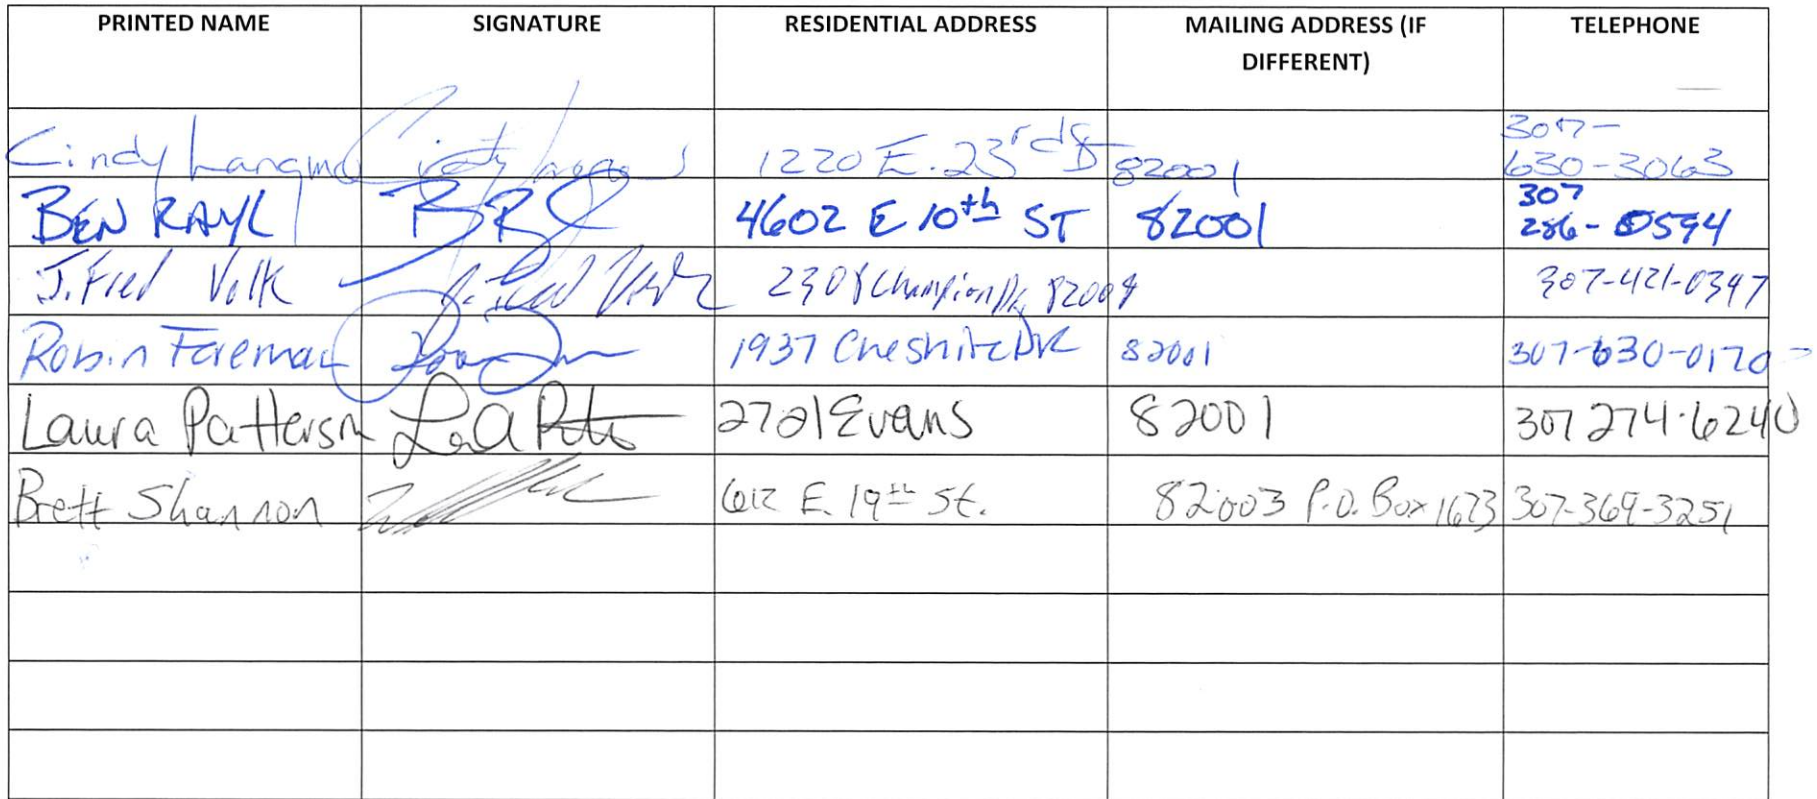 PRINTED NAME SIGNATURE RESIDENTIAL ADDRESS MAILING ADDRESS (IF DIFFERENT) TELEPHONE
Cindy 1220 E. 23rd St 82001 307-630-3063
BEN RAYL 4602 E 10th ST 82001 307 286-0594
J. Fred Volk Champion Dr 307-421-0347
Robin Foreman 1937 Cheshire DR 82001 307-630-0170
Laura Patterson 2721 Evans 82001 307 274-6240
Brett Shannon 612 E. 19th St. 82003 P.O. Box 1673 307-369-3251